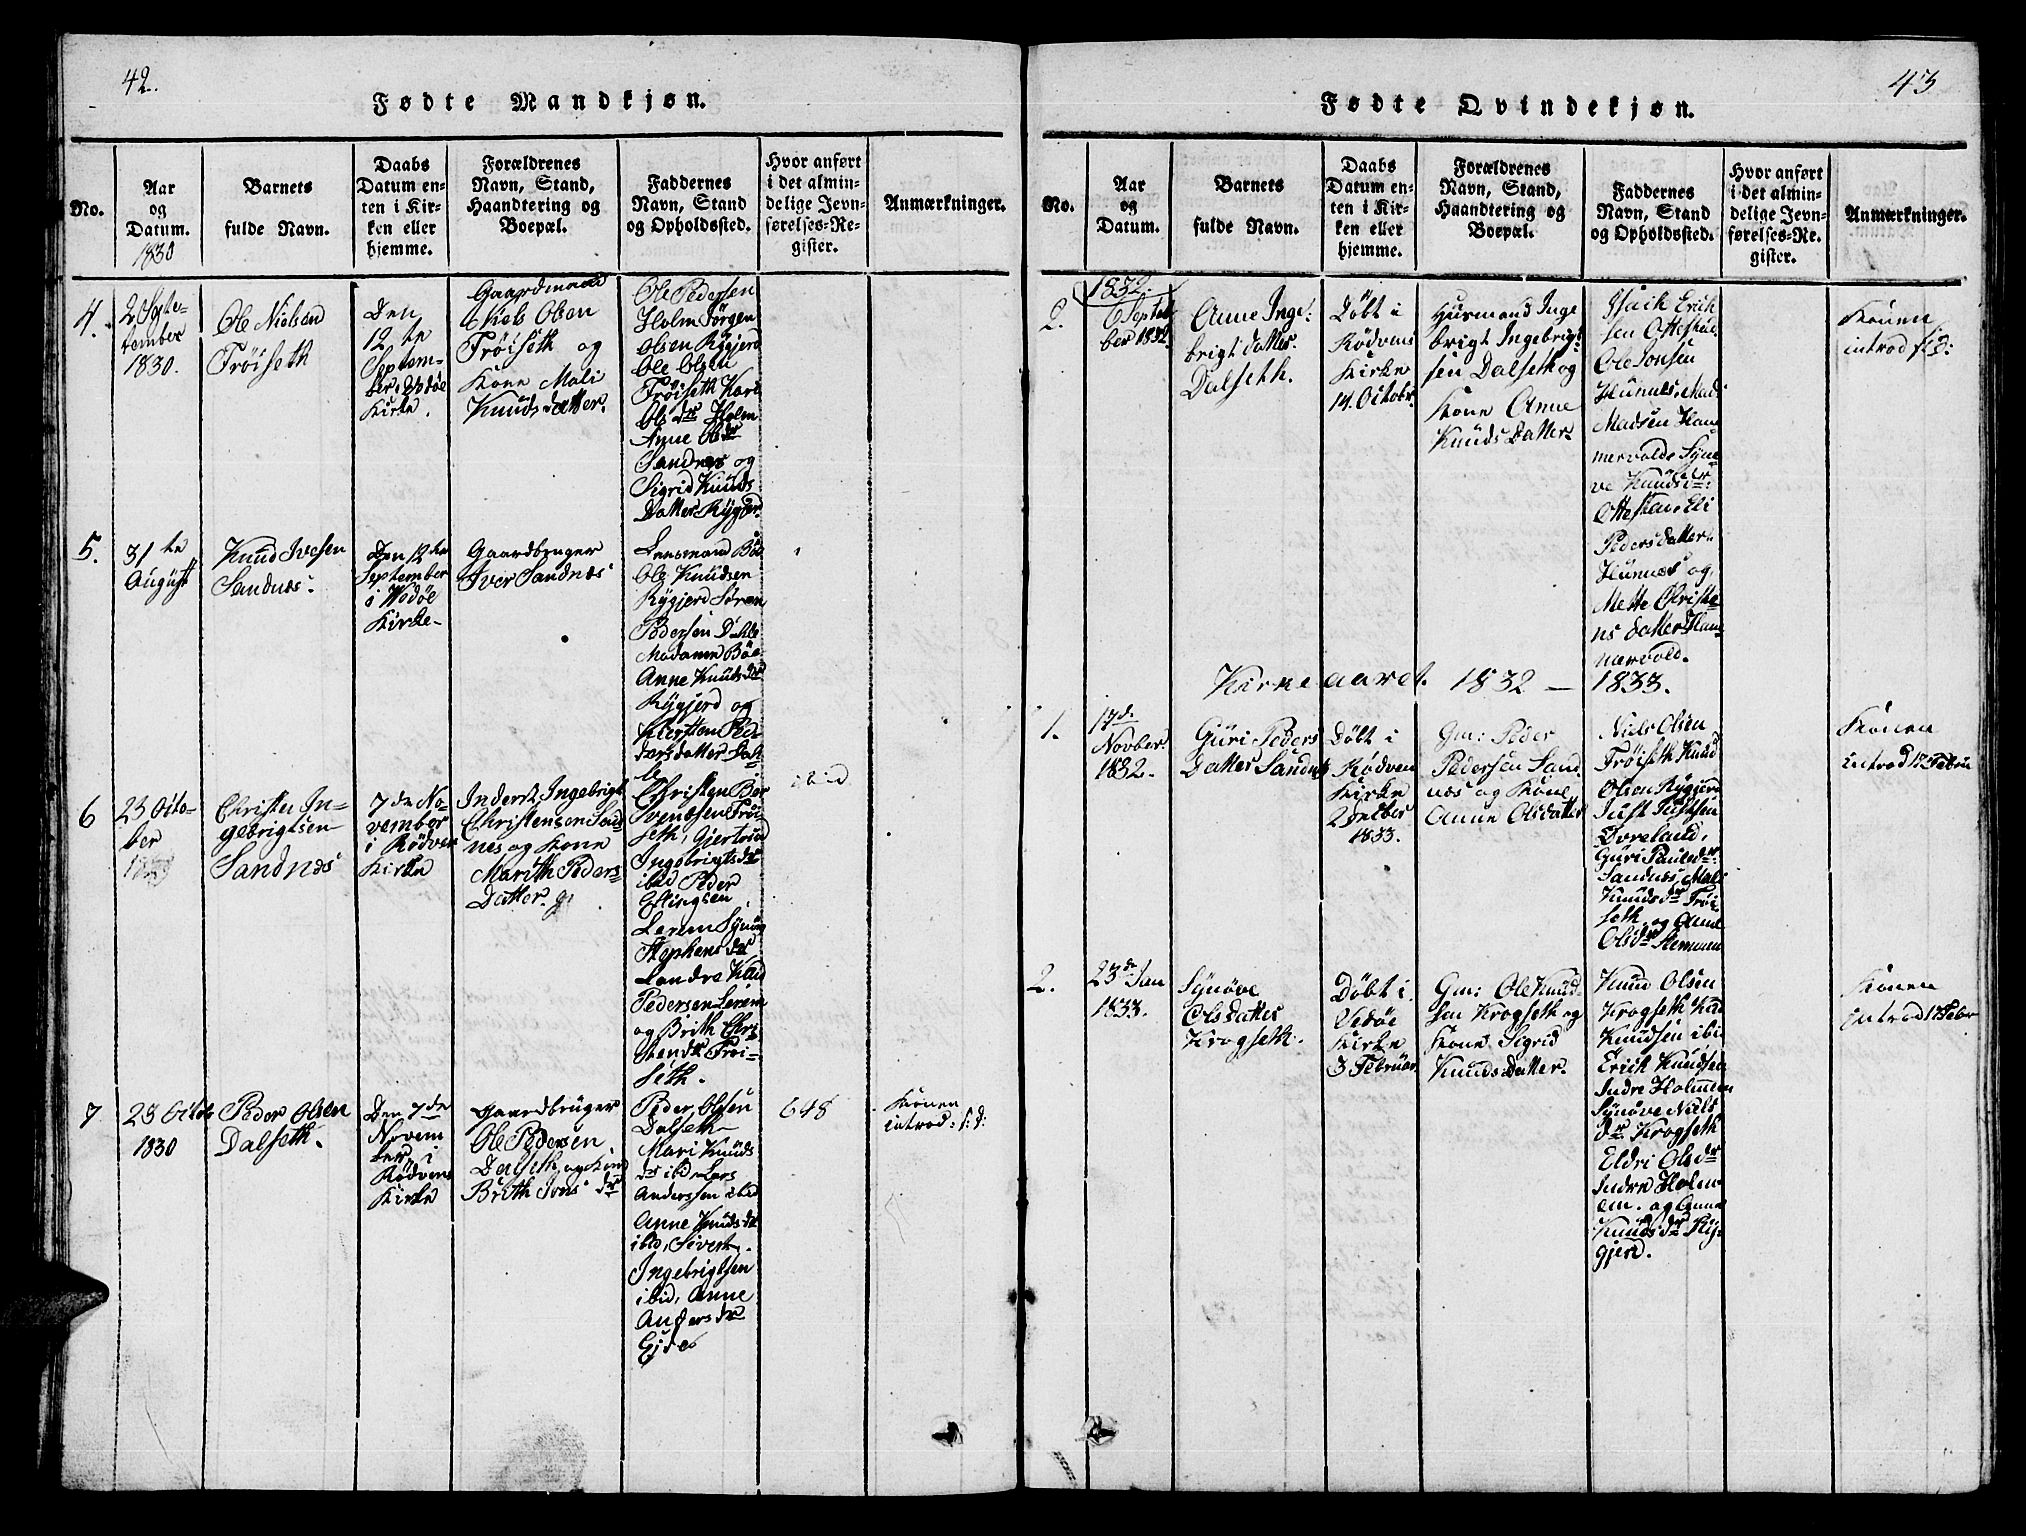 42.
Fødte Mandkjøn.
No.
Aar
og
Datum.
1830
Barnets
fulde Navn.
Daabs
Datum en-
ten i Kir-
ken eller
hjemme.
Forældrenes
Navn, Stand,
Haandtering og
Boepæl.
Faddernes
Navn, Stand
og Opholdssted.
Hvor anført
i det almin-
delige Jevn-
førelses-Re-
gister.
Anmærkninger.
4.
2 Septe-
tember
1830.
Ole Nielsen
Tröiseth
Den
12te
Septem-
ber
Kirke.
Gaardmand
Niels Olsen
Tröiseth og
Kone Mali
Knudsdatter.
Ole Pedersen
Holm Jörgen
Olsen Rygjerd
Ole Olsen
Tröiseth Kari
Ols dr Holm
Anne Olsdr
Sandnæs og
Sigrid Knuds
Datter Rygjer
5.
31te
August
Knud Ivesen
Sandnæs.
Den 12te
September
i Wedöe
Kirke.
Gaardbruger
Iver Sandnæs
Lensmand Böe
Ole Knudsen
Rygjerd Sören
Pedersen Dahle
Madame Böe
Anne Knudsdr
Rygjerd og
Kiersten Pe-
dersdatter Dah-
le
6
23 Octo-
ber
Christen In-
gebrigtsen
Sandnæs
7de No-
vember
i Rödven
Kirke
Inderst Ingebrigt
Christensen Sand
næs og Kone
Marith Peders-
Datter.
Christen
Svendsen Tröi
seth, Gjertrud
Ingebrigtsdr
ibid Peder
Ellingsen
Lerem Synöv
Stephens dr
Sandnæs Knud
Pedersen Lerem
og Brith Chri
stensdr Tröi-
seth.
ibid
7
23 Octob
1830
Peder Olsen
Dalseth.
Den 7de
Novem
ber i
Rödvens
Kirke
Gaardbruger
Ole Pedersen
Dalseth og Kone
Brith Jons dr
Peder Olsen
Dalseth
Mari Knuds
dr ibid, Lars
Anderssen ibid
Anne Knudsdr
ibid, Sivert
Ingebrigtsen
ibid, Anne
Anders dr
Ejde
648
Konen
introd: s: d:
43
Fødte Qvindekjøn.
No.
Aar
og
Datum.
Barnets
fulde Navn.
Daabs
Datum en-
ten i Kir-
ken eller
hjemme.
Forældrenes
Navn, Stand,
Haandtering og
Boepæl.
Faddernes
Navn, Stand
og Opholdssted.
Hvor anført
i det almin-
delige Jevn-
førelses-Re-
gister.
Anmærkninger.
2.
1832.
6 Septem
ber 1832.
Anne Inge-
brigtdatter
Dalseth.
Döbt i
Rödvens
Kirke
14. Octobr.
Huusmand Inge
brigt Ingebrigt
sen Dalseth og
Kone Anne
Knuds Datter.
Isack Erich
sen Ottestad
Ole Jonsen
Hunnæs, Mads
Madsen Ham
mervolde Syne
ve Knudsdr
Ottestad, Eli
Pedersdatter
Hunnæs og
Mette Christe
ns datter Ham
mervold.
Konen
introd s: d:
Kirkeaaret 1832 — 1833.
1.
17de
Novber.
1832.
Guri Peders
Datter Sandnæs
Döbt i
Rödven
Kirke
2
1833.
Gm: Peder
Pedersen Sand
næs og Kone
Anne Olsdatter
Niels Olsen
Tröiseth Knud
Olsen Rygjerd
Just Justsen
Devold,
Guri Pauls dr.
Sandnæs, Mali
Knudsdr Tröi
seth og Anne
Olsdr
Konen
introd 17 Febru
2.
23de Jan
1833.
Synöve
Olsdatter
Krogseth.
Döbt i
Vedöe
Kirke
3 Februar
Gm: Ole Knud
sen Krogseth og
Kone Sigrid
Knuds Datter.
Knud Olsen
Krogseth Knud
Knudsen ibi
Erich Knudsen
Indre Holmem
Synöve Niels
dr Krogseth
Eldri Olsdr
Indre Holm
em. og Anne
Knuds dr Ryg
gjerd.
Konen
introd 17 Febr